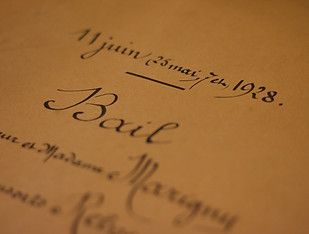 11 juin, 25 mai, 7 ch, 1928.
Bail
eur et Madame Marigny